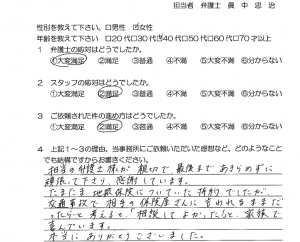 担当者 弁護士 眞中忠治
性別を教えて下さい。□男性 ☑女性
年齢を教えて下さい □20代□30代☑40代□50代□60代□70才以上
1 弁護士の応対はどうでしたか。
①大変満足 ②満足 ③普通 ④不満 ⑤大変不満 ⑥分からない
2 スタッフの応対はどうでしたか。
①大変満足 ②満足 ③普通 ④不満 ⑤大変不満 ⑥分からない
3 ご依頼された件の進め方はどうでしたか。
①大変満足 ②満足 ③普通 ④不満 ⑤大変不満 ⑥分からない
4 上記1~3の理由、当事務所にご依頼いただいた感想など、どのようなこと
でも結構ですからお書きください。
担当の弁護士様が親切で最後まであきらめずに
頑張って下さり、感謝しています。
たまたま地震保険についていた特約でしたが
交通事故で相手の保険屋さんに言われるままだ
ったらと考えると、相談してよかったと、家族で
喜んでいます。
本当にありがとうございました。